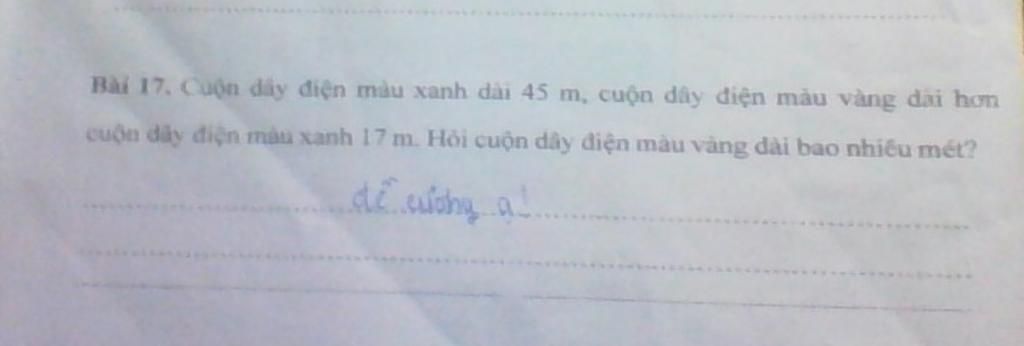 Bài 17. Cuộn dây điện màu xanh dài 45 m, cuộn dây điện màu vàng dài hơn
cuộn dây điện màu xanh 17 m. Hỏi cuộn dây điện màu vàng dài bao nhiêu mét?
dễ ạ!